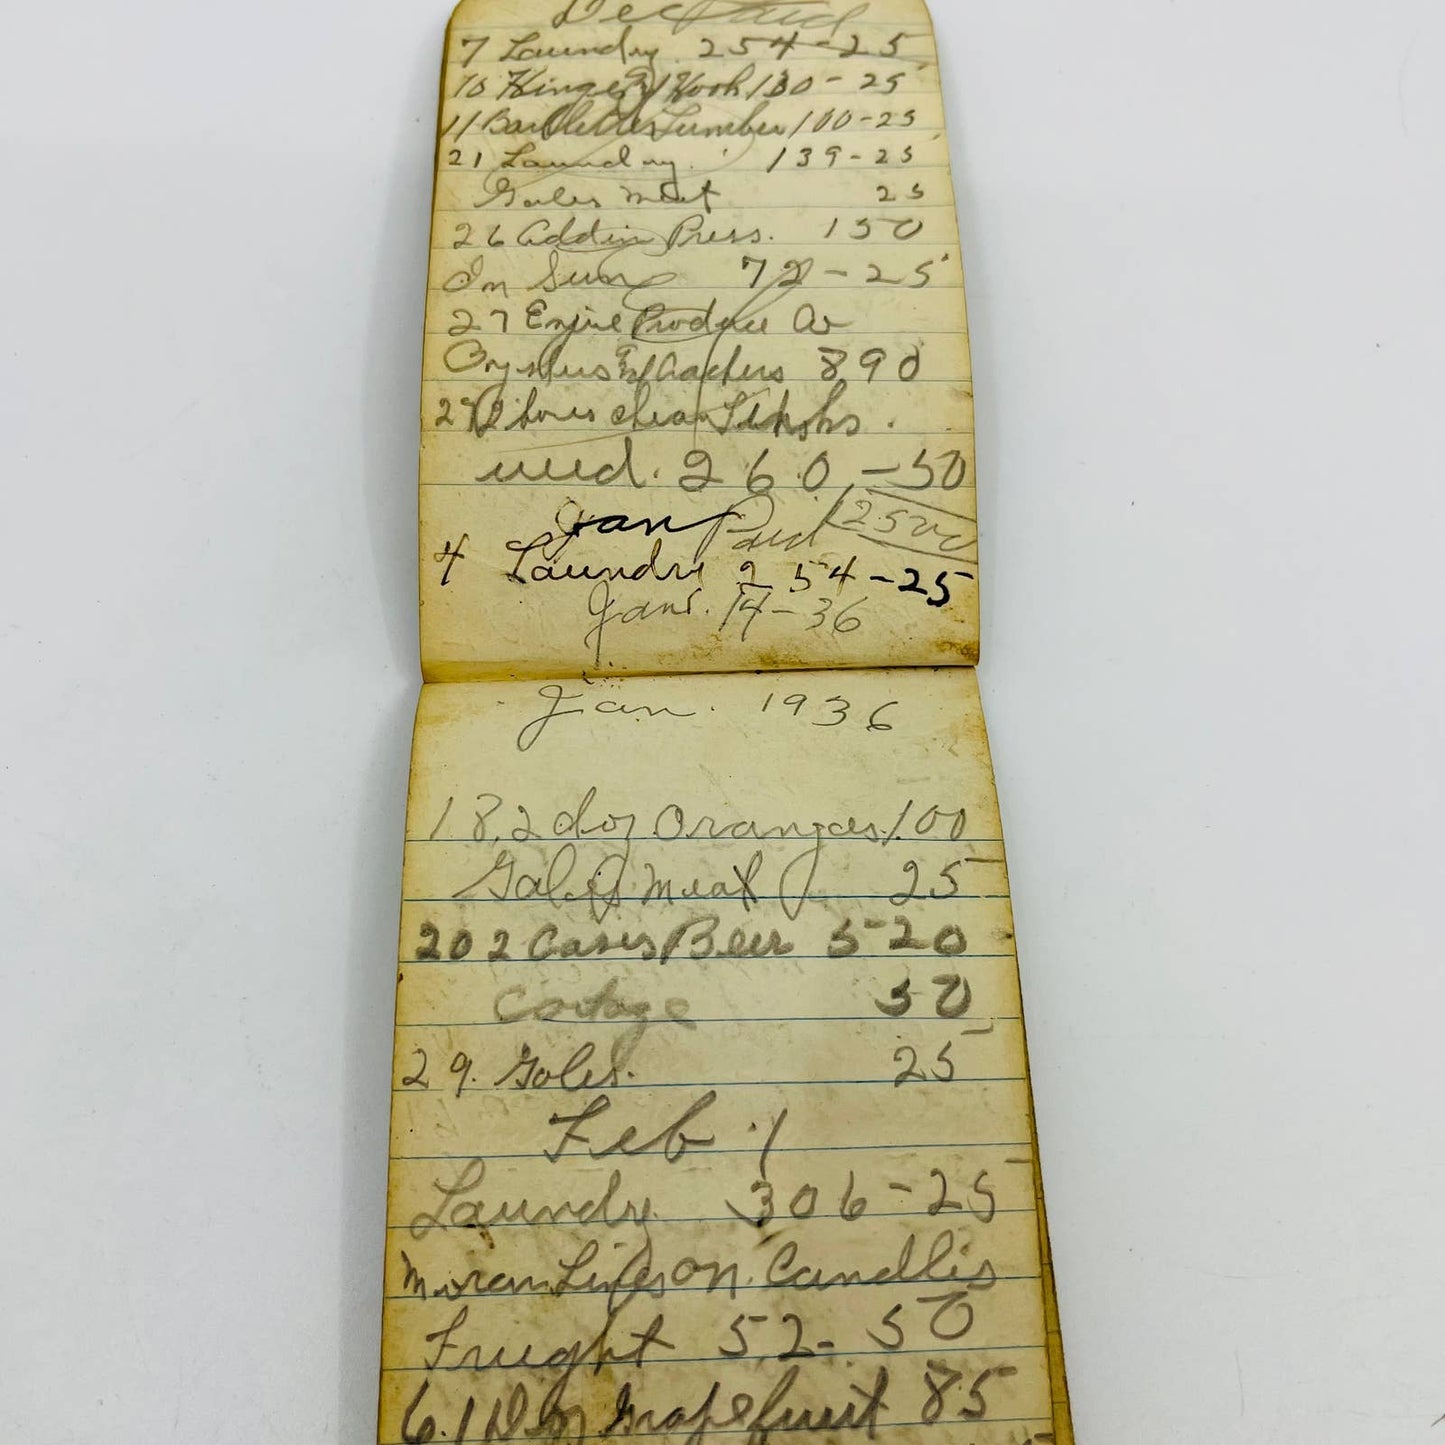 Dec Paid
7 Laundry 254-25
10 Hinge & Hook 130-25
11 Bartletts Lumber 100-25
21 Laundry. 139-25
Gales Meat 25
26 Press. 150
72-25
27 Engine Produce Co
Crackers 890
need. 260-50
2500
Jan Paid
4 Laundry 254-25
Jan. 14-36
Jan. 1936
18. 2 doz Oranges 100
Gales Meat 25
20 2 Cases Beer 520
Cartage 50
29. Gales. 25
Feb. 1
Laundry. 306-25
Moran Candles
Frieght 52-50
6. 1 Doz Grapefruit 85